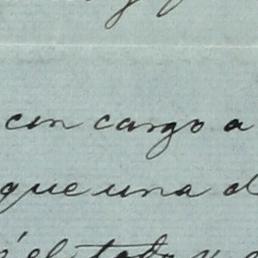 con cargo a
que una d
el todo y